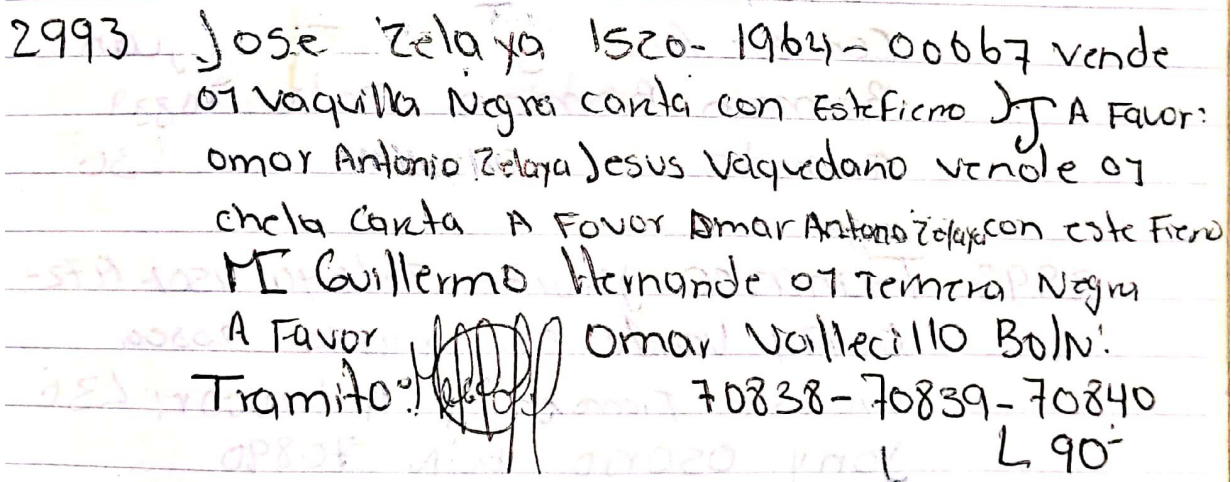 2993 Jose Zelaya 1520-1964-00667 vende
01 vaquilla Negra careta con Este fierro JJ A Favor:
omar Antonio Zelaya Jesus Vaquedano vende 01
chela Careta A Favor Omar Antono Zelaya con este Fierro
MI Guillermo Hernande 01 Ternera Negra
A Favor Omar Vallecillo BolN:
Tramito: 70838-70839-70840
L 90-